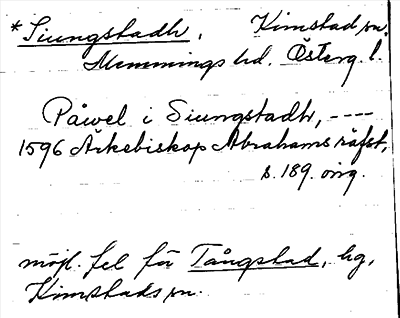 *Siungstadh, Kimstad sn.
Memmings hd. Österg. l.
Påwel i Siungstadh, ----
1596 Ärkebiskop Abrahams räfst,
s. 189. orig.
möjl. fel för Tångstad, hg,
Kimstads sn.